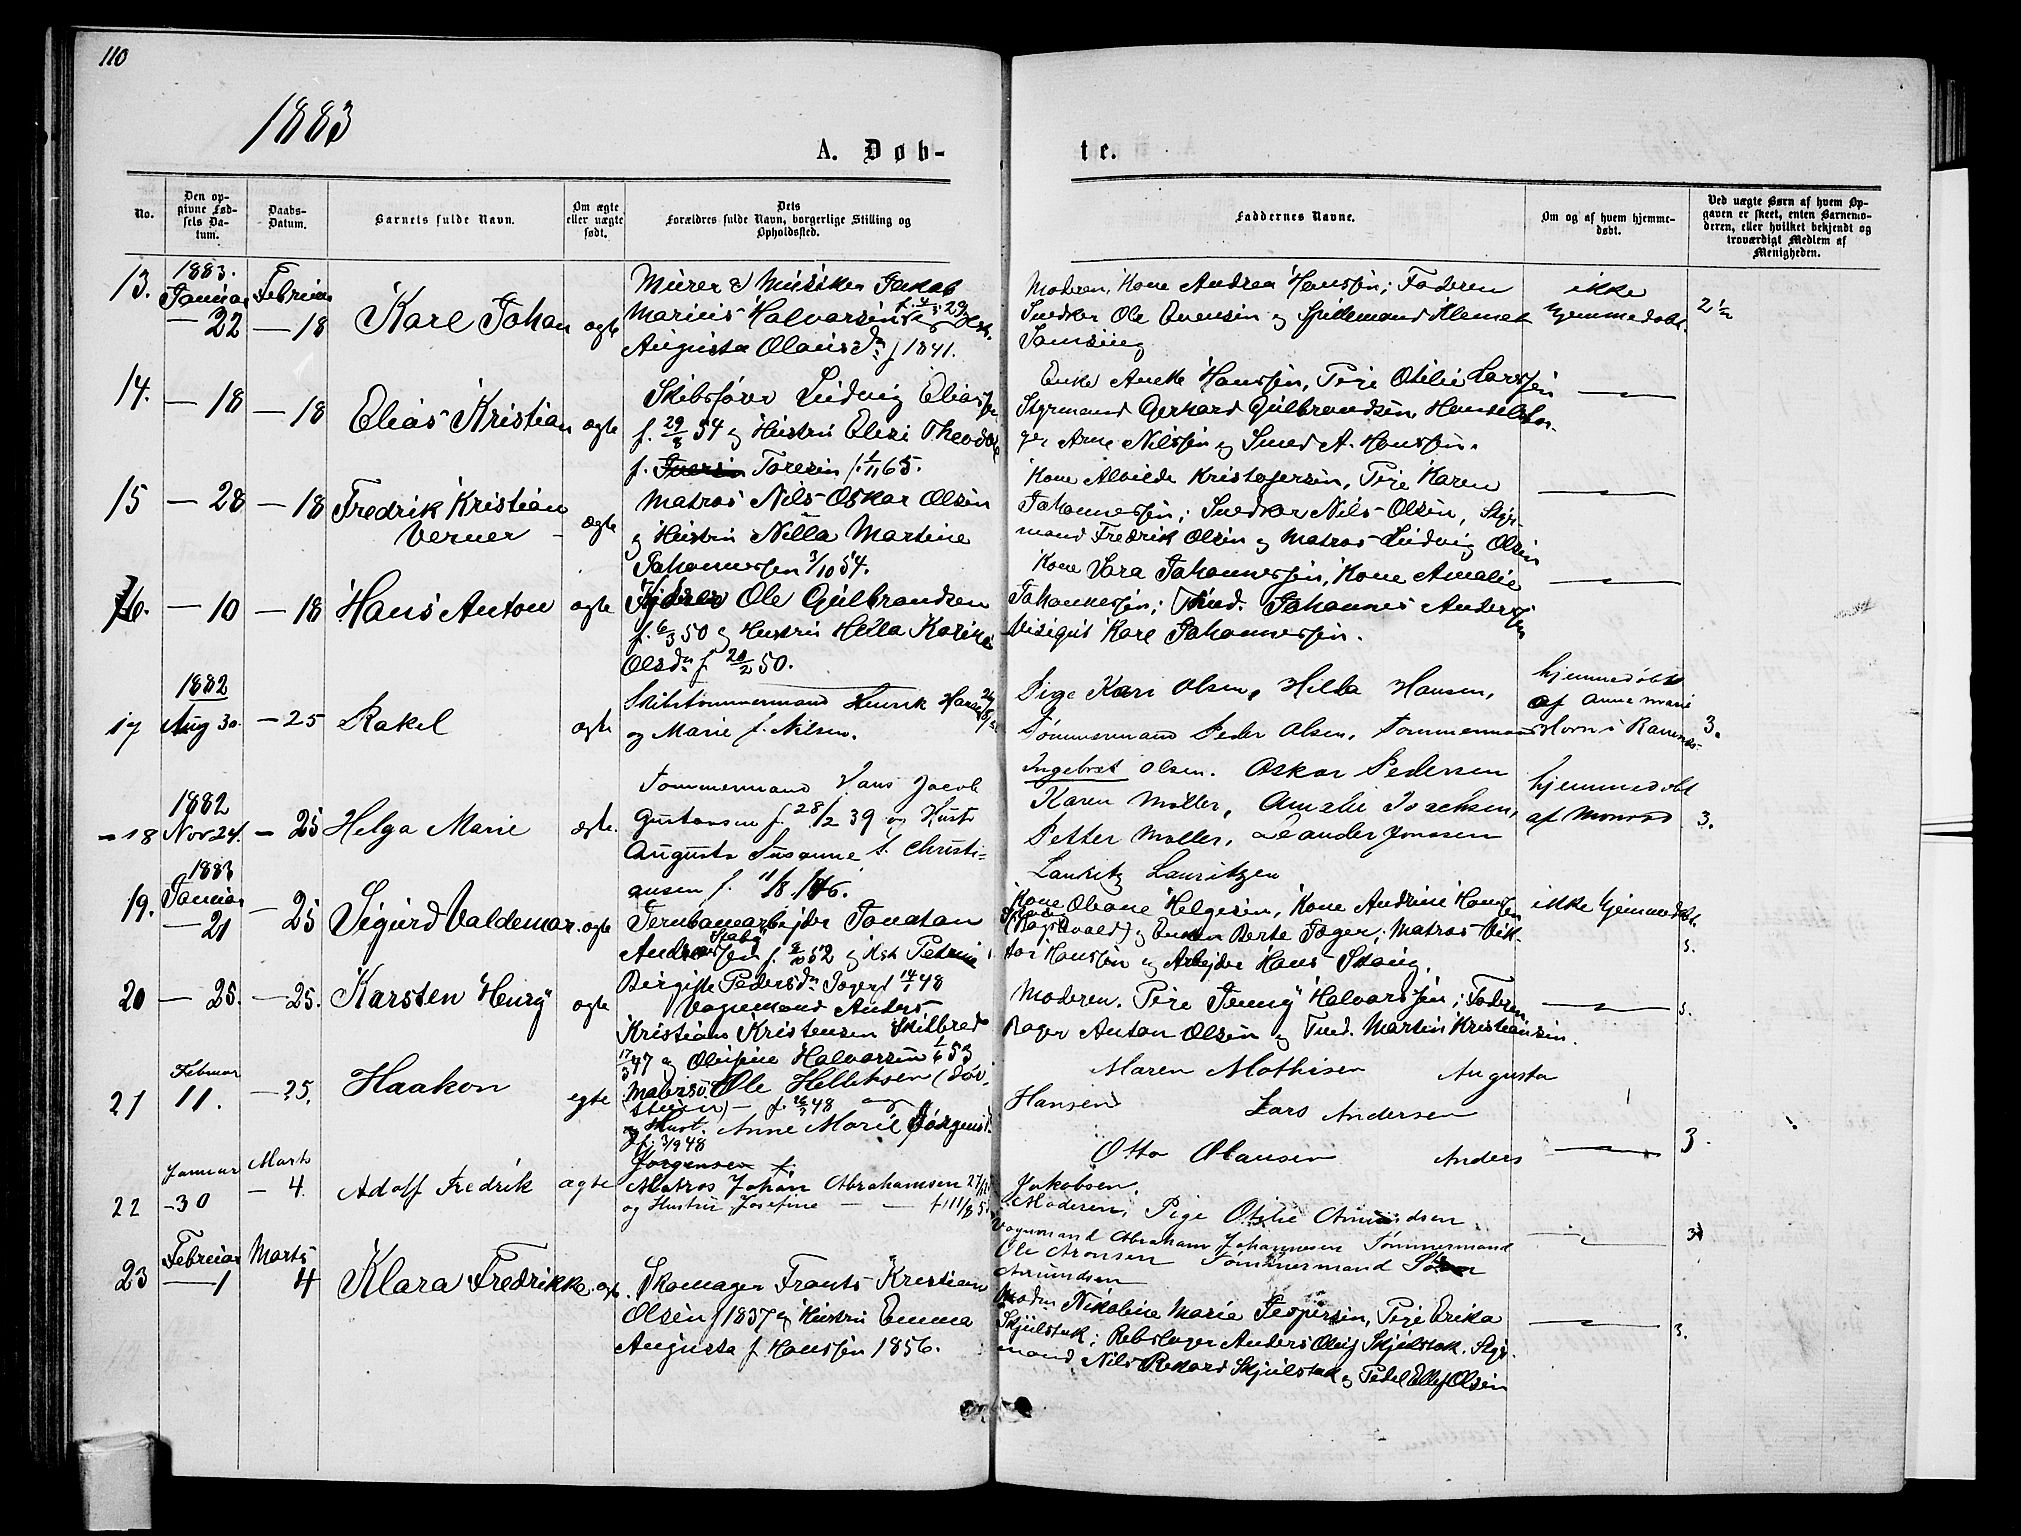 110
1883
A. Døb-
te.
No.
Den op-
givne Fød-
sels Da-
tum.
Daabs-
Datum.
Barnets fulde Navn.
Om ægte
eller uægte
født.
Dets
Forældres fulde Navn, borgerlige Stilling og
Opholdssted.
Faddernes Navne.
Om og af hvem hjemme-
døbt.
Ved uægte Børn af hvem Op-
gaven er skeet, enten Barnemo-
deren, eller hvilket bekjendt og
troværdigt Medlem af
Menigheden.
13.
1883.
Januar
— 22
Februar
— 18
Karl Johan
ægte
Murer & Musiker Jakob
Marius Halvorsen
Augusta Olausd. f 1841.
Moderen, Kone Andrea Hansen; Faderen
Snedker Ole Evensen og Spillemand Klemet
ikke
hjemmedøbt.
2½
14.
— 18
— 18
Elias Kristian
ægte
Skibsfører Ludvig Eliassen
f. 29/8 54 og Hustru Elisi Theodora
f. Toresen f. 1/11 65.
Enke Anette Hanssen, Pige Otilie Larssen
Styrmand Gerhard Gulbrandsen Handelsbor-
ger Arne Nilssen og Smed A. Hanssen.
15
— 28
— 18
Fredrik Kristian
Verner
ægte
Matros Nils Oskar Olsen
og Hustru Nilla Martine
Johannessen 3/10 54.
Kone Alvilde Kristofersen, Pige Karen
Johannessen; Snedker Nils Olsen, Styr-
mand Fredrik Olsen og Matros Ludvig Olsen
16.
— 10
— 18
Hans Anton
ægte
Ole Gulbrandsen
f. 6/3 50 og Hustru Hella Karine
Olsd. f. 20/2 50.
Kone Sara Johannessen, Kone Amalie
Johannessen; Johannes Anderssen
Karl Johannessen.
17
1882
Aug 30.
— 25
Rakel
ægte
Skibstømmermand Henrik Hansen
og Marie f. Nilsen.
Pige Kari Olsen, Hilda Hansen,
Tømmermand Peder Olsen, Tømmermand
Ingebret Olsen. Oskar Pedersen
hjemmedøbt
af Anne Marie
Horn i Ramnes
3.
18
1882
Nov 24.
— 25
Helga Marie
ægte.
Tømmermand Hans Jacob
Gustavsen f. 28/2 39 og Hustr
Augusta Susanne f. Christi-
ansen f. 11/8 46.
Karen Møller, Amalie Isachsen,
Petter Møller, Leander Jonssen
Lauritz Lauritzen
hjemmedøbt
af Monrad
3.
19.
1883
Januar
— 21
— 25
Sigurd Valdemar
ægte
Jernbanearbejder Jonatan
Anderssen f. 9/10 52 og Hst Petrine
Birgitte Pedersd.
Kone Oleane Helgesen, Kone Andrine Hanssen
og Enken Berte Jager; Matros Vik-
tor Hanssen og Arbejder Hans Skaug.
ikke hjemmedøbt.
3.
20
— 25.
— 25.
Karsten Henry
ægte
Vognmand Anders
Kristian Kristensen Skilbred
17/3 47 og Olufine Halvorsen 1/6 53
Moderen. Pige Jenny Halvorssen; Faderen
Bager Anton Olsen og Tmd. Martin Kristiansen.
3.
21
Februar
11.
— 25.
Haakon
egte
Ole Helleksen
og Hust. Anne Marie Jørgensd.
f. 3/9 48
Jorgensen f.
Maren Mathisen Augusta
Hansen Lars Andersen
Otto Olausen Anders
Jakobsen.
3.
22
Januar
— 30
Marts
— 4.
Adolf Fredrik
ægte
Matros Johan Abrahamsen
og Hustru Josefine
Moderen, Pige Otilie Amundsen
Vognmand Abraham Johannesen Tømmermand
Ole Aronsen Tømmermand
Amundsen
3
23
Februar
— 1
Marts
4
Klara Fredrikke
ægte
Skomager Frants Kristian
Olsen f 1837 og Hustru Emma
Augusta f Hanssen 1856.
Moder Nikoline Marie Jespersen, Pige Erika
Skjelstak; Rebslager Anders Oluf Skjelstak. Styr-
mand Nils Rikard Skjelstak og Olsen
3.